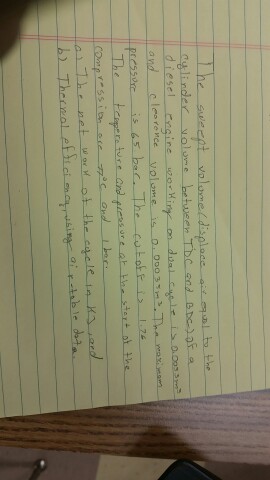 The swept volume (displace air equal to the
cylinder volume between TDC and BDC) of a
diesel engine working on dual cycle is 0.0053m³
and clearance volume is 0.00035m³. The maximum
pressure is 65 bar. The cutoff is
The temperature and pressure at the start of the
compression are and 1 bar.
a) The net work of the cycle in KJ, and
b) Thermal efficiency, using air table data